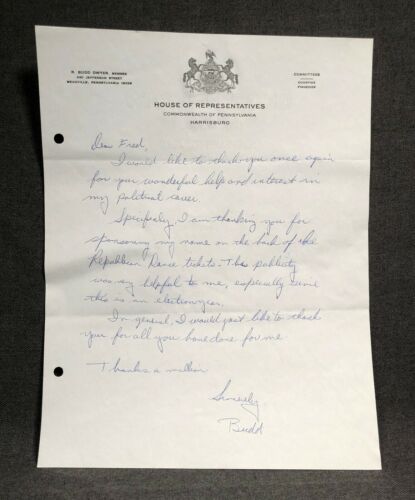 R. BUDD DWYER, MEMBER
JEFFERSON STREET
MEADVILLE, PENNSYLVANIA
COMMITTEES
HOUSE OF REPRESENTATIVES
COMMONWEALTH OF PENNSYLVANIA
HARRISBURG
Dear Fred,
I would like to thank you once again
for your wonderful help and interest in
my political career.
Specifically, I am thanking you for
sponsoring my name on the back of the
Republican Dance tickets. This publicity
was very helpful to me, especially since
this is an election year.
In general, I would just like to thank
you for all you have done for me
Thanks a million
Sincerely
Budd